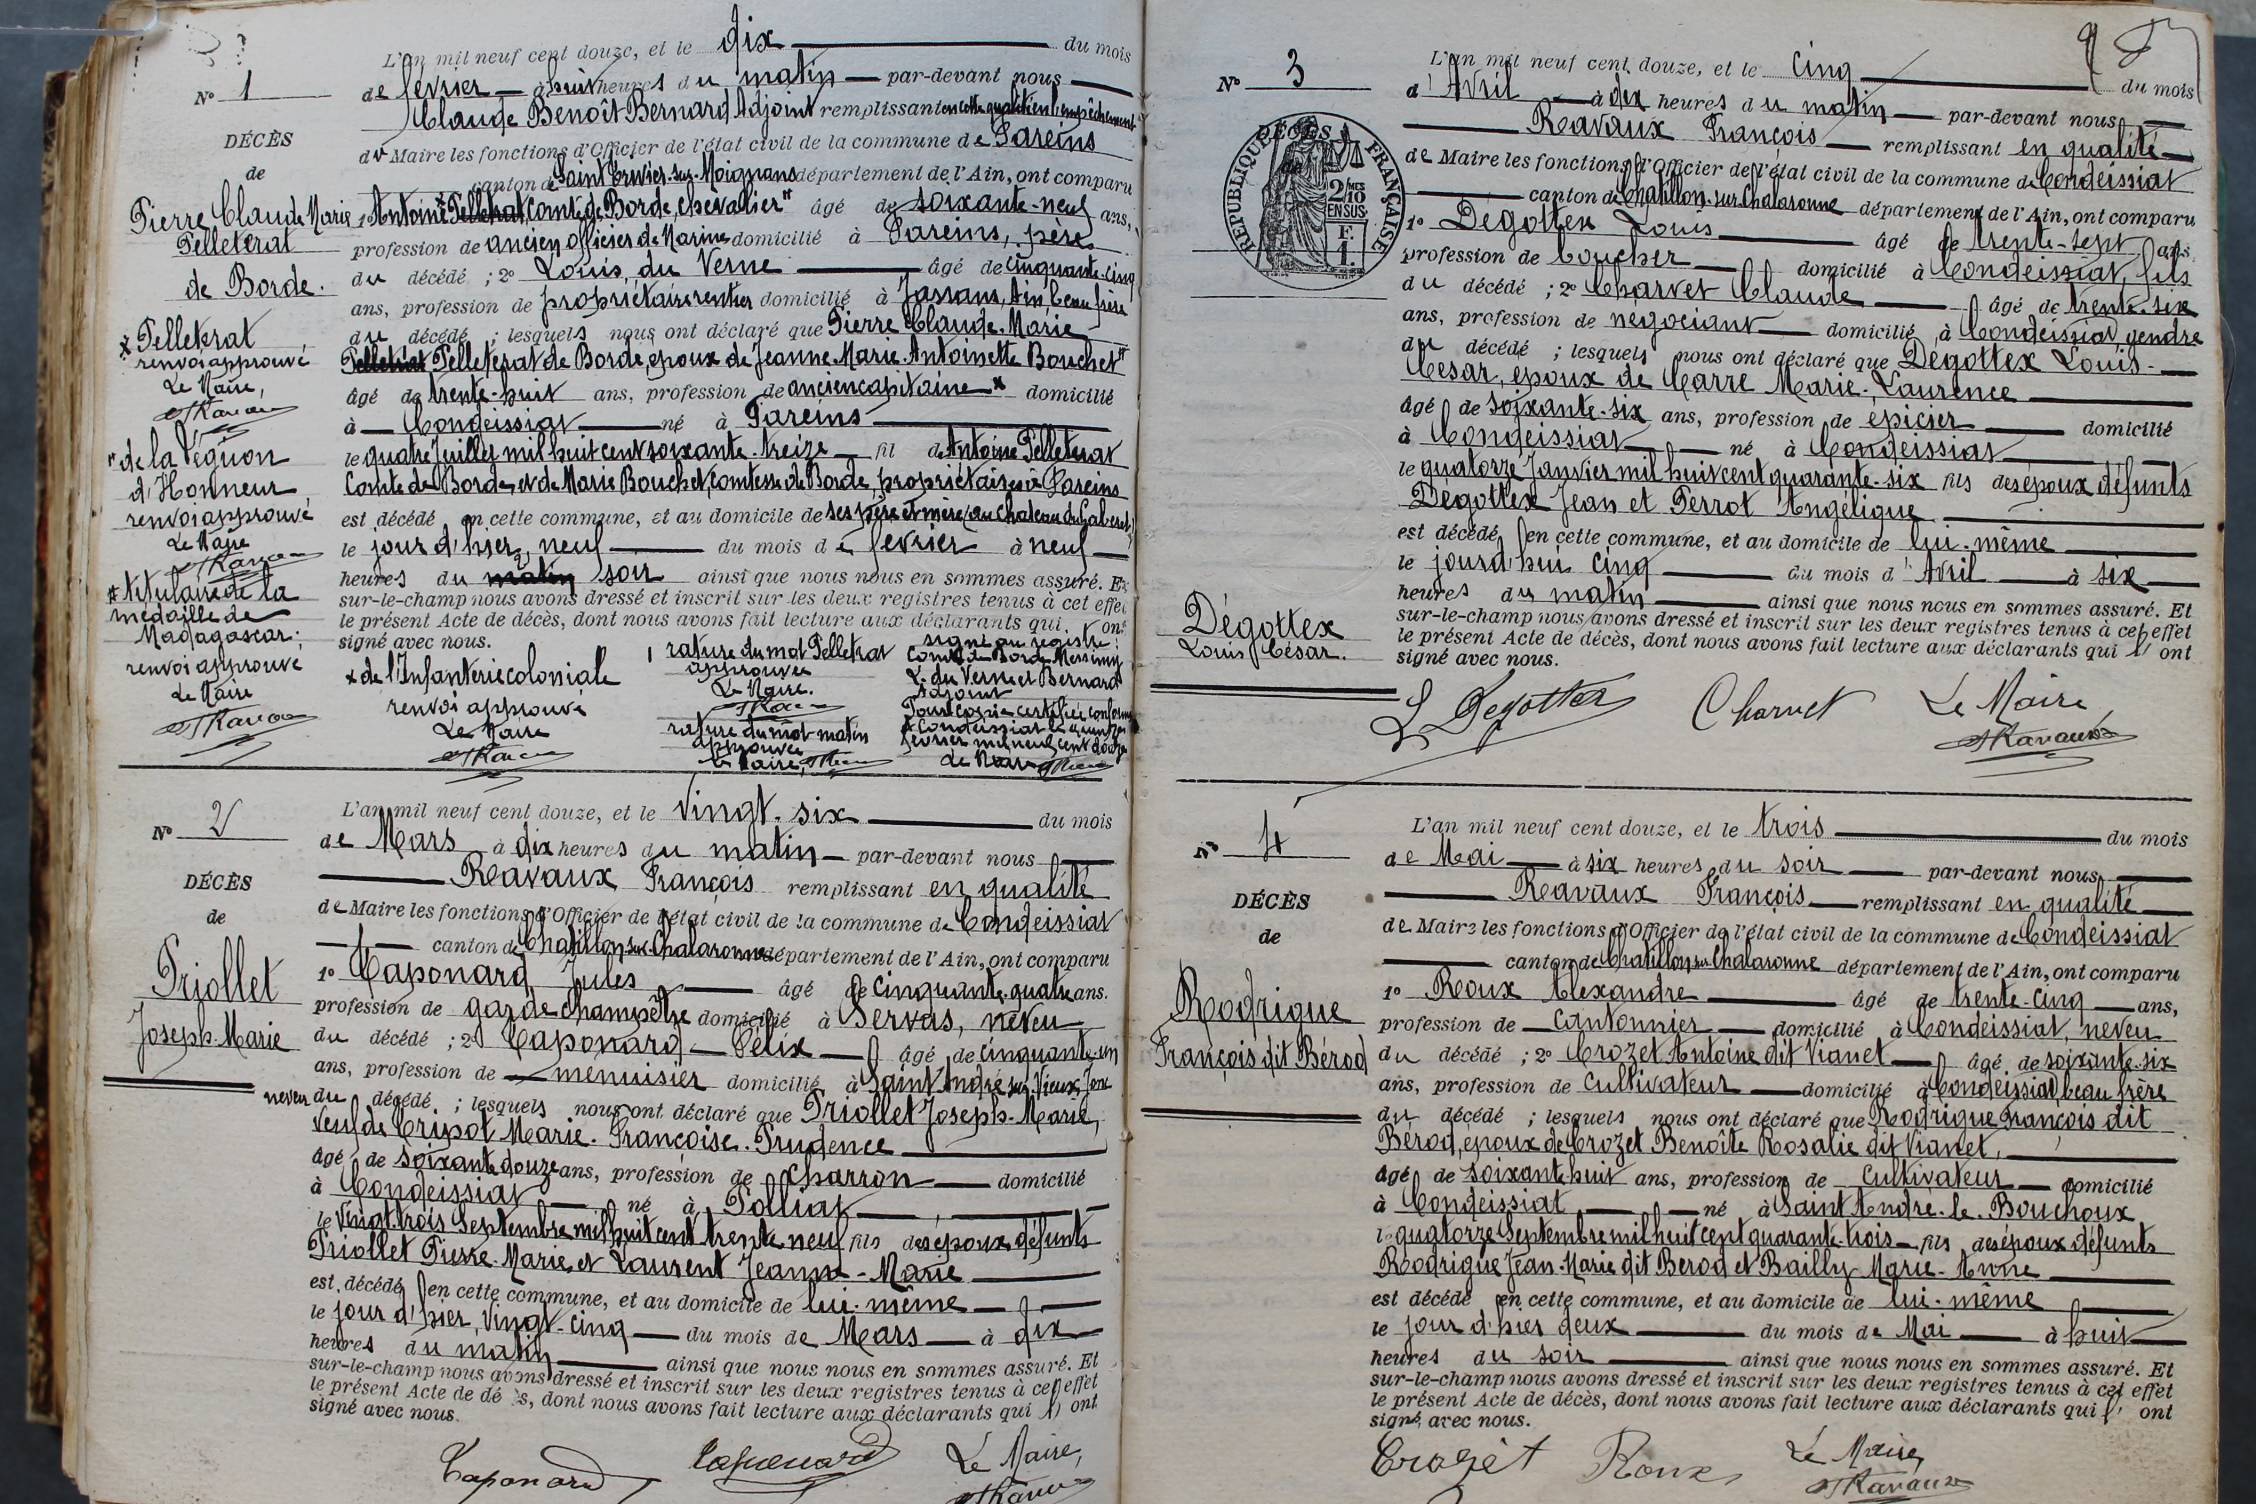 L'an mil neuf cent douze, et le dix du mois
N° 1
de février à huit heures du matin par-devant nous
Claude Benoît Bernard Adjoint remplissant en cette qualité en l'empêchement
DÉCÈS
du Maire les fonctions d'Officier de l'état civil de la commune de Fareins
de
canton de Saint Trivier-sur-Moignans département de l'Ain, ont comparu
Pierre Claude Marie
Pelleterat
de Borde.
1° Antoine Pelletrat, Comte de Borde, chevalier" âgé de soixante-neuf ans,
profession de ancien officier de Marine domicilié à Fareins, père
du décédé ; 2° Louis du Verne âgé de cinquante-cinq
ans, profession de propriétaire rentier domicilié à Jassans, Ain, beau frère
du décédé ; lesquels nous ont déclaré que Pierre Claude-Marie
Pelletrat Pelleterat de Borde, époux de Jeanne-Marie-Antoinette Bouchet"
âgé de trente-huit ans, profession de ancien capitaine x domicilié
à Condeissiat né à Fareins
le quatre Juillet mil huit cent soixante-treize fil de Antoine Pelleterat
Comte de Borde, et de Marie Bouchet, Comtesse de Borde, propriétaires à Fareins
est décédé en cette commune, et au domicile de ses père et mère (au chateau du
le jour d'hier, neuf du mois de février à neuf
heures du matin soir ainsi que nous nous en sommes assuré. Et
sur-le-champ nous avons dressé et inscrit sur les deux registres tenus à cet effet
le présent Acte de décès, dont nous avons fait lecture aux déclarants qui ont
signé avec nous.
x Pelletrat
renvoi approuvé
Le Maire,
"de la Légion
d'Honneur
renvoi approuvé
Le Maire
# titulaire de la
médaille de
Madagascar;
renvoi approuvé
Le Maire
x de l'Infanterie coloniale
renvoi approuvé
Le Maire
rature du mot Pelletrat
approuvée
Le Maire.
rature du mot matin
approuvée
Le Maire,
signé au registre :
Comte de Borde, Messimy
L. du Verne et Bernard
Adjoint
Pour copie certifiée conforme
à Condeissiat le quinze
février mil neuf cent douze
Le Maire
N° 2
L'an mil neuf cent douze, et le vingt-six du mois
de Mars à dix heures du matin par-devant nous
Ravaux François remplissant en qualité
DÉCÈS
de
Priollet
Joseph-Marie
de Maire les fonctions d'Officier de l'état civil de la commune de Condeissiat
canton de Chatillon-sur-Chalaronne département de l'Ain, ont comparu
1° Taponard Jules âgé de cinquante-quatre ans.
profession de garde champêtre domicilié à Servas, neveu
du décédé ; 2° Taponard Félix âgé de cinquante-un
ans, profession de menuisier domicilié à Saint André sur Vieux Jonc
neveu du décédé ; lesquels nous ont déclaré que Priollet Joseph-Marie,
veuf de Cripot Marie-Françoise-Prudence
âgé de soixante douze ans, profession de charron domicilié
à Condeissiat né à Polliat
le vingt-trois Septembre mil huit cent trente neuf fils des époux défunts
Priollet Pierre-Marie, et Laurent Jeanne-Marie
est décédé en cette commune, et au domicile de lui-même
le jour d'hier, vingt-cinq du mois de Mars à dix
heures du matin ainsi que nous nous en sommes assuré. Et
sur-le-champ nous avons dressé et inscrit sur les deux registres tenus à cet effet
le présent Acte de décès, dont nous avons fait lecture aux déclarants qui ont
signé avec nous.
Taponard Taponard Le Maire,
9
N° 3
L'an mil neuf cent douze, et le cinq du mois
d'Avril à dix heures du matin par-devant nous
Ravaux François remplissant en qualité
DÉCÈS
RÉPUBLIQUE FRANÇAISE
2/10MES
EN SUS
F.
1.
de Maire les fonctions d'Officier de l'état civil de la commune de Condeissiat
canton de Chatillon-sur-Chalaronne département de l'Ain, ont comparu
1° Dégottex Louis âgé de trente-sept ans,
profession de boucher domicilié à Condeissiat, fils
du décédé ; 2° Charvet Claude âgé de trente-six
ans, profession de négociant domicilié à Condeissiat, gendre
du décédé ; lesquels nous ont déclaré que Dégottex Louis-
César, époux de Carré Marie-Laurence
âgé de soixante-six ans, profession de épicier domicilié
à Condeissiat né à Condeissiat
le quatorze Janvier mil huit cent quarante-six fils des époux défunts
Dégottex Jean et Perrot Angélique
est décédé en cette commune, et au domicile de lui-même
le jourd'hui cinq du mois d'Avril à six
heures du matin ainsi que nous nous en sommes assuré. Et
sur-le-champ nous avons dressé et inscrit sur les deux registres tenus à cet effet
le présent Acte de décès, dont nous avons fait lecture aux déclarants qui l' ont
signé avec nous.
Dégottex
Louis César.
L Degottex Charvet Le Maire
Ravaux
N° 4
L'an mil neuf cent douze, et le trois du mois
de Mai à six heures du soir par-devant nous
Ravaux François remplissant en qualité
DÉCÈS
de
Rodrigue
François dit Bérod
de Maire les fonctions d'Officier de l'état civil de la commune de Condeissiat
canton de Chatillon sur Chalaronne département de l'Ain, ont comparu
1° Roux Alexandre âgé de trente-cinq ans,
profession de cantonnier domicilié à Condeissiat, neveu
du décédé ; 2° Crozet Antoine dit Vianet âgé de soixante-six
ans, profession de cultivateur domicilié à Condeissiat, beau frère
du décédé ; lesquels nous ont déclaré que Rodrigue François dit
Bérod, époux de Crozet Benoîte Rosalie dit Vianet,
âgé de soixante huit ans, profession de cultivateur domicilié
à Condeissiat né à Saint André-le-Bouchoux
le quatorze Septembre mil huit cent quarante-trois fils des époux défunts
Rodrigue Jean-Marie dit Berod et Bailly Marie-Anne
est décédé en cette commune, et au domicile de lui-même
le jour d'hier deux du mois de Mai à huit
heures du soir ainsi que nous nous en sommes assuré. Et
sur-le-champ nous avons dressé et inscrit sur les deux registres tenus à cet effet
le présent Acte de décès, dont nous avons fait lecture aux déclarants qui l' ont
signé avec nous.
Crozet Roux Le Maire,
Ravaux